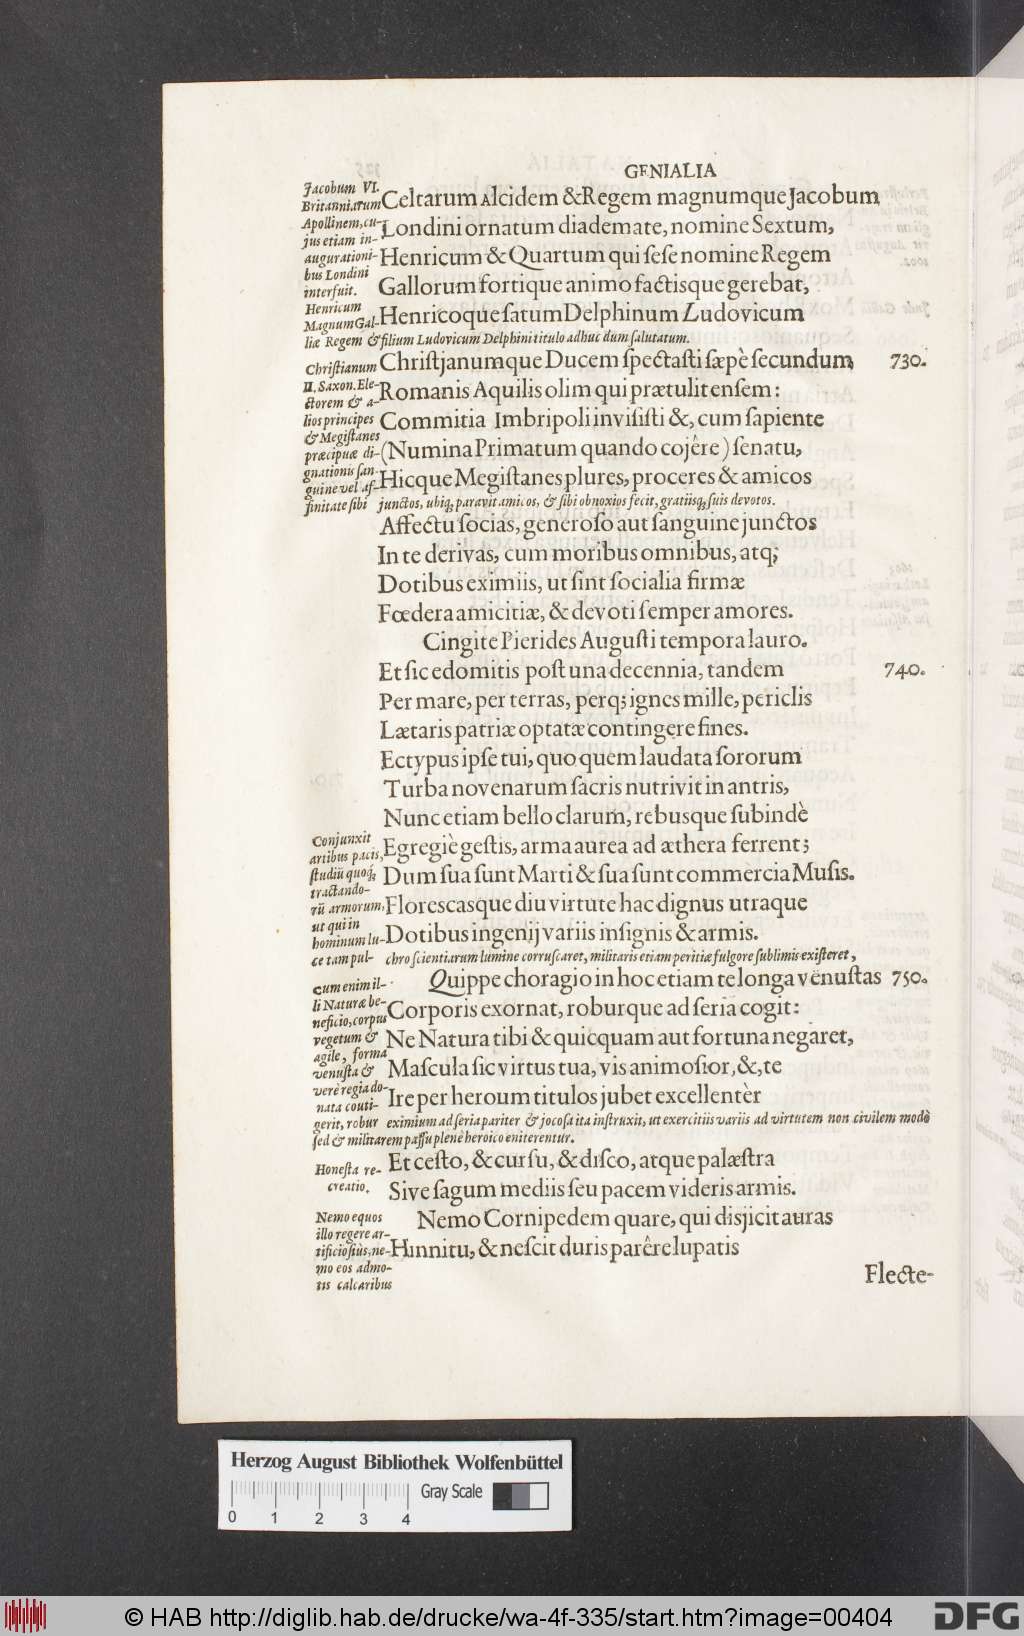 GENIALIA
Jacobum VI.
Britanniarum
Apollinem, cu-
jus etiam in-
augurationi-
bus Londini
interfuit.
Henricum
Magnum Gal-
liæ Regem & filium Ludovicum Delphini titulo adhuc dum salutatum.
Celtarum Alcidem & Regem magnumque Jacobum
Londini ornatum diademate, nomine Sextum,
Henricum & Quartum qui sese nomine Regem
Gallorum fortique animo factisque gerebat,
Henricoque satum Delphinum Ludovicum
Christianum
II. Saxon. Ele-
ctorem & a-
lios principes
& Megistanes
præcipuæ di-
gnationis san-
guine vel af-
finitate sibi junctos, ubiq; paravit amicos, & sibi obnoxios fecit, gratiisq; suis devotos.
Christjanumque Ducem spectasti sæpè secundum, 730.
Romanis Aquilis olim qui prætulit ensem:
Commitia Imbripoli invisisti &, cum sapiente
(Numina Primatum quando cojêre) senatu,
Hicque Megistanes plures, proceres & amicos
Affectu socias, generoso aut sanguine junctos
In te derivas, cum moribus omnibus, atq;
Dotibus eximiis, ut sint socialia firmæ
Fœdera amicitiæ, & devoti semper amores.
Cingite Pierides Augusti tempora lauro.
Et sic edomitis post una decennia, tandem 740.
Per mare, per terras, perq; ignes mille, periclis
Lætaris patriæ optatæ contingere fines.
Ectypus ipse tui, quo quem laudata sororum
Turba novenarum sacris nutrivit in antris,
Nunc etiam bello clarum, rebusque subindè
Conjunxit
artibus pacis,
studiū quoq;
tractando-
rū armorum,
ut qui in
hominum lu-
ce tam pul- chro scientiarum lumine corruscaret, militaris etiam peritiæ fulgore sublimis existeret,
Egregiè gestis, arma aurea ad æthera ferrent;
Dum sua sunt Marti & sua sunt commercia Musis.
Florescasque diu virtute hac dignus utraque
Dotibus ingenij variis insignis & armis.
cum enim il-
li Naturæ be-
neficio, corpus
vegetum &
agile, forma
venusta &
verè regia do-
nata conti-
gerit, robur eximium ad seria pariter & jocosa ita instruxit, ut exercitiis variis ad virtutem non civilem modò
sed & militarem passu plenè heroico eniterentur.
Quippe choragio in hoc etiam te longa venustas 750.
Corporis exornat, roburque ad seria cogit:
Ne Natura tibi & quicquam aut fortuna negaret,
Mascula sic virtus tua, vis animosior, &, te
Ire per heroum titulos jubet excellentèr
Honesta re-
creatio.
Et cesto, & cursu, & disco, atque palæstra
Sive sagum mediis seu pacem videris armis.
Nemo equos
illo regere ar-
tificiosiùs, ne-
mo eos admo-
tis calcaribus
Nemo Cornipedem quare, qui disjicit auras
Hinnitu, & nescit duris parêre lupatis
Flecte-
Herzog August Bibliothek Wolfenbüttel
Gray Scale
0 1 2 3 4
© HAB http://diglib.hab.de/drucke/wa-4f-335/start.htm?image=00404
DFG